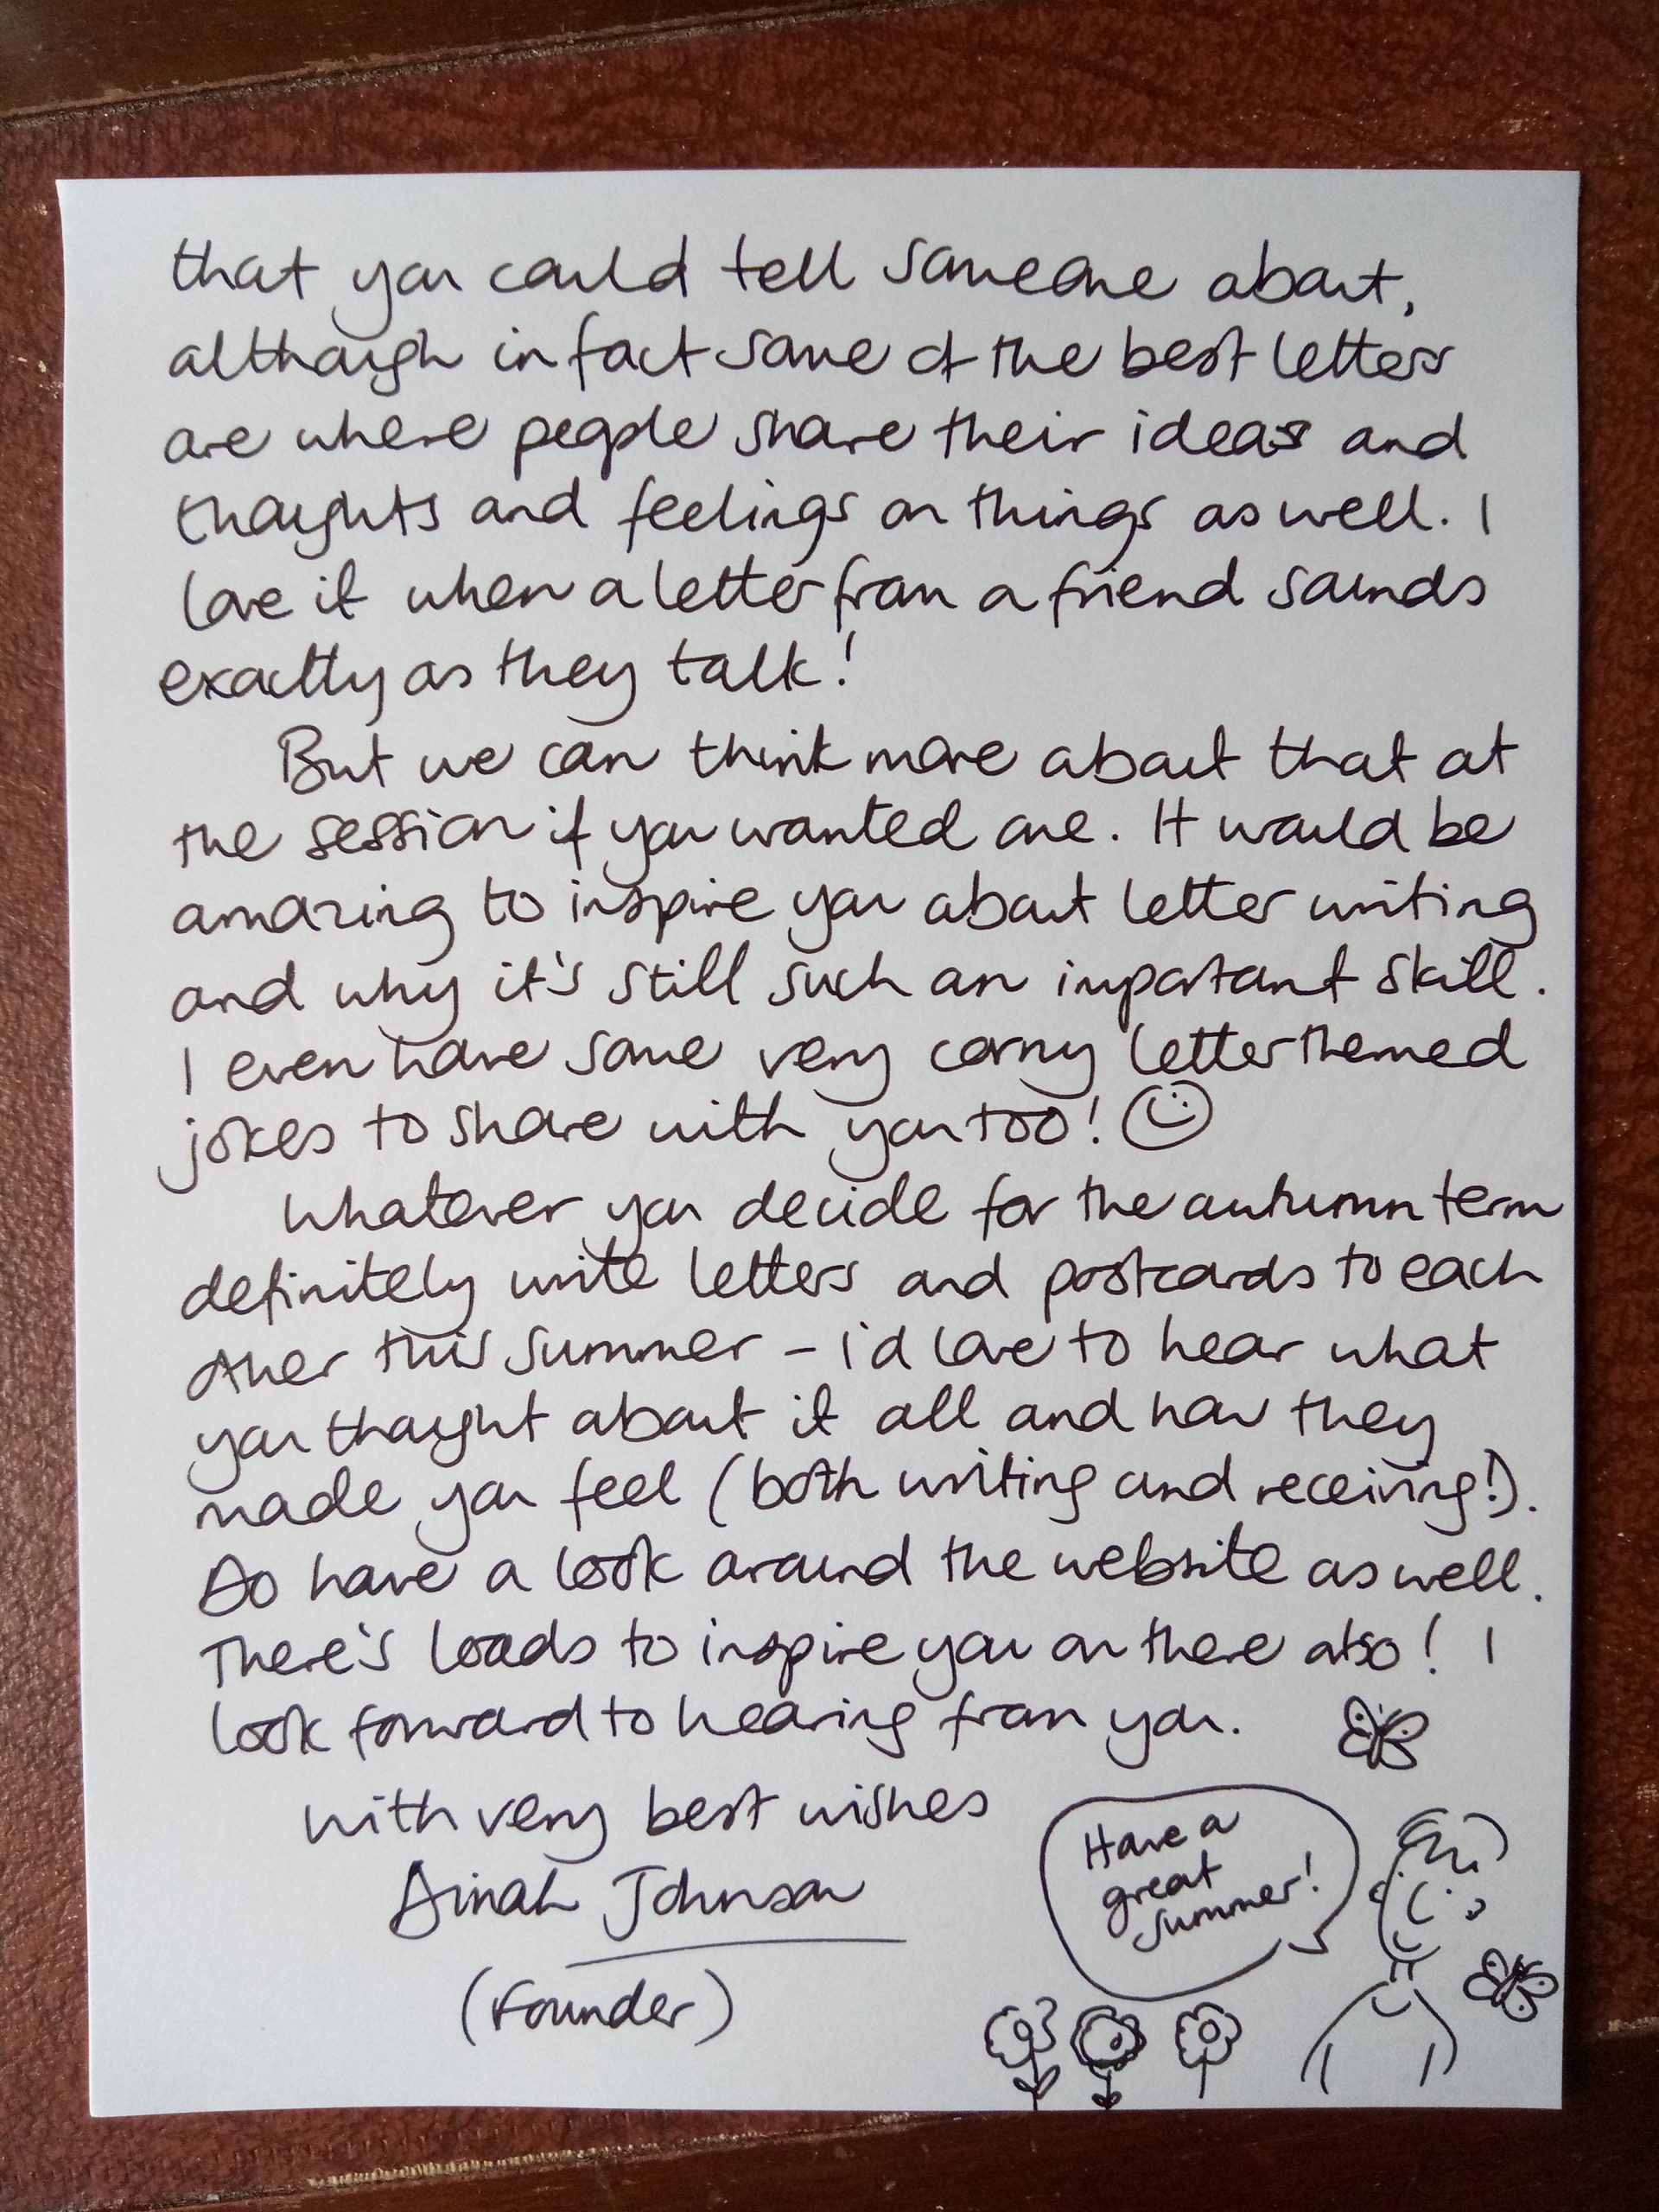 that you could tell someone about,
although in fact some of the best letters
are where people share their ideas and
thoughts and feelings on things as well. I
love it when a letter from a friend sounds
exactly as they talk!
But we can think more about that at
the session if you wanted one. It would be
amazing to inspire you about letter writing
and why it's still such an important skill.
I even have some very corny letter themed
jokes to share with you too! ☺
Whatever you decide for the autumn term
definitely write letters and postcards to each
other this summer – i'd love to hear what
you thought about it all and how they
made you feel (both writing and receiving!).
Do have a look around the website as well.
There's loads to inspire you on there also! I
look forward to hearing from you.
With very best wishes
Dinah Johnson
(Founder)
Have a
great
summer!